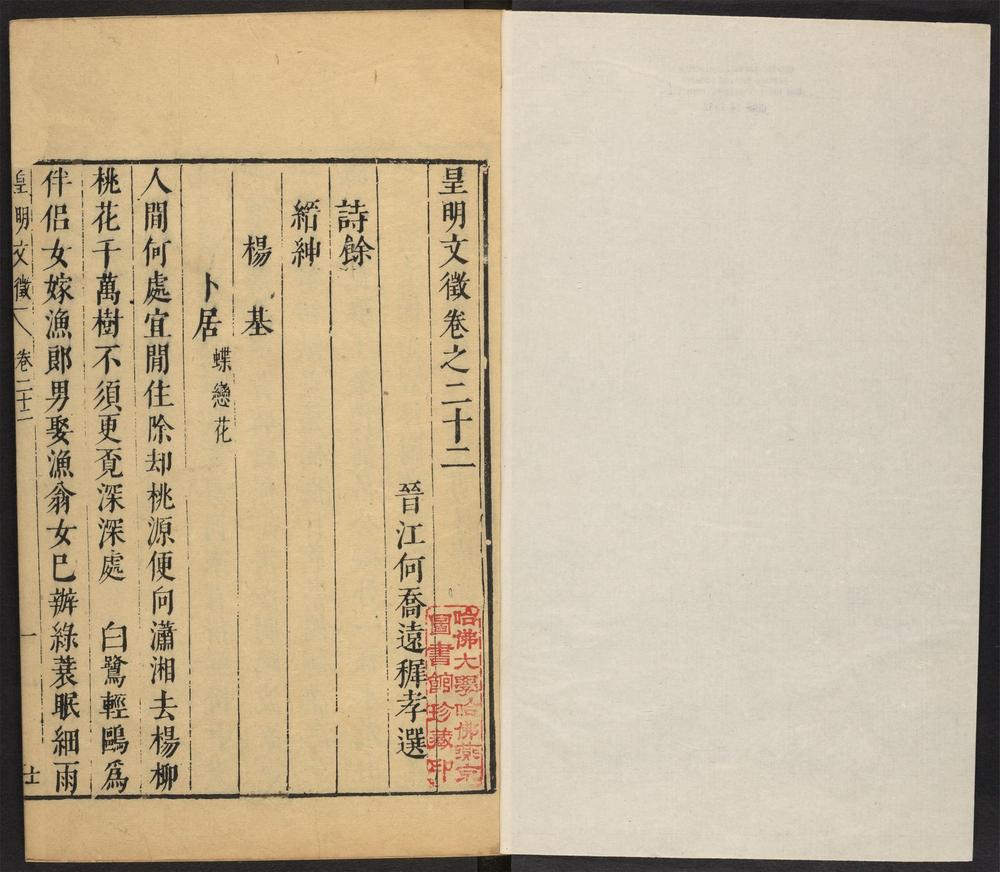 皇明文徵卷之二十二
晉江何喬遠穉孝選
詩餘
縉紳
楊基
卜居蝶戀花
人間何處宜閒住除却桃源便向瀟湘去楊柳
桃花千萬樹不須更覔深深處　白鷺輕鷗爲
伴侶女嫁漁郎男娶漁翁女巳辦綠蓑眠細雨
皇明文徵　卷二十二　一
哈佛大學哈佛燕京
圖書館珍藏印